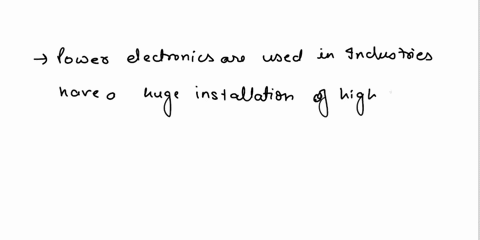 → Power electronics are used in Industries
have a huge installation of high